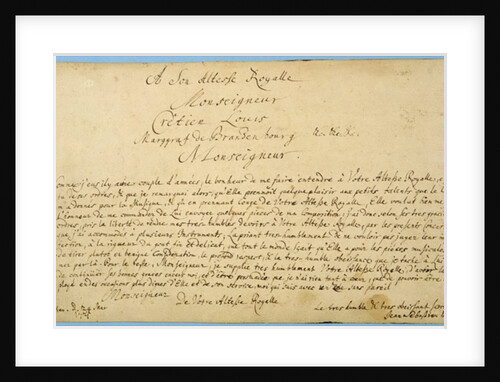 A Son Altesse Royalle
Monseigneur
Crètien Louis
Marggraf de Brandenbourg &c. &c. &c.
Monseigneur.
couple d'années, le bonheur de me faire entendre à Votre Altesse Royalle,
ordres, & que je remarquai alors, qu'Elle prennoit quelque plaisir aux petits talents que le
m'a donnés pour la Musique, & qu'en prennant Conge de Votre Altesse Royalle, Elle voulut bien me
l'honneur de me commander de Lui envoyer quelques pieces de ma Composition: j'ai donc selon ses tres gracieux
ordres, pris la liberté de rendre mes tres-humbles devoirs à Votre Altesse Royalle, par les presents
que j'ai accommodés à plusieurs Instruments; La priant tres-humblement de ne vouloir pas juger leur
à la rigueur du gout fin et delicat, que tout le monde sçait qu'Elle a pour les pièces musicales
de tirer plutot en benigne Consideration, le profond respect, & la tres-humble obeissance que je tache à Lui
par là. Pour le reste, Monseigneur, je supplie tres humblement Votre Altesse Royalle, d'avoir la
de continuer ses bonnes graces envers moi, et que je n'ai rien tant à cœur, que de pouvoir être
employé en des occasions plus dignes d'Elle et de son service, moi qui suis avec un zele sans pareil
Monseigneur
De Votre Altesse Royalle
Le tres humble & tres obeissant
Jean Sebastian